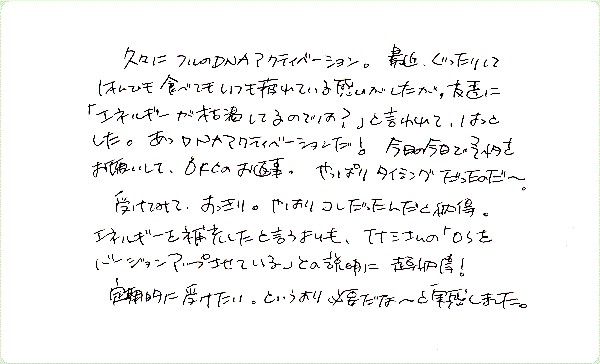 久々に フルのDNAアクティベーション。最近、ぐったりして
なんでも 食べてもいつも疲れている感じがしたが、友達に
「エネルギーが枯渇してるのでは？」と言われて、はっと
した。あっDNAアクティベーションだ！ 今日の今日で予約を
お願いして、OKとのお返事。やっぱり タイミングだったのだ〜。
受けてみて、すっきり。やはり コレだったんだと納得。
エネルギーを補充したと言うよりも、さんの「OSを
バージョンアップさせている」との説明に 超納得！
定期的に受けたい。というより必要だな〜と実感しました。